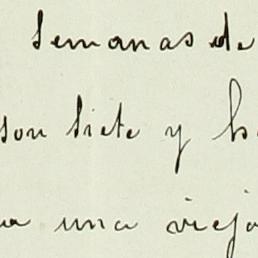 semanas de
son siete y
una vieja